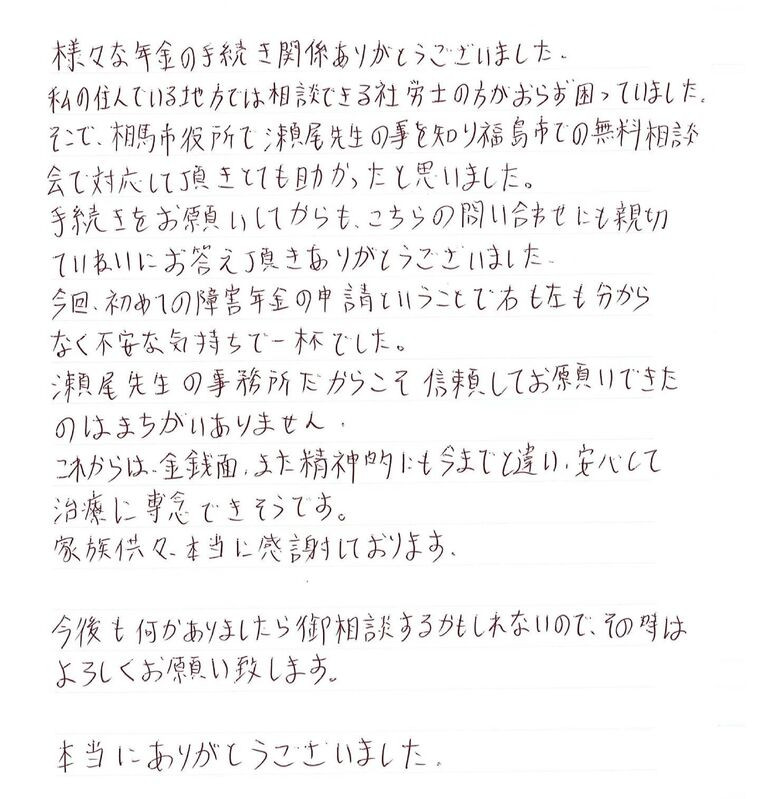 様々な年金の手続き関係ありがとうございました.
私の住んでいる地方では相談できる社労士の方がおらず困っていました。
そこで、相馬市役所で瀬尾先生の事を知り福島市での無料相談
会で対応して頂きとても助かったと思いました。
手続きをお願いしてからも、こちらの問い合わせにも親切
ていねいにお答え頂きありがとうございました.
今回、初めての障害年金の申請ということで右も左も分から
なく不安な気持ちで一杯でした。
瀬尾先生の事務所だからこそ信頼してお願いできた
のはまちがいありません.
これからは、金銭面、また精神的にも今までと違い、安心して
治療に専念できそうです。
家族供々、本当に感謝しております.
今後も何かありましたら御相談するかもしれないので、その時は
よろしくお願い致します。
本当にありがとうございました.